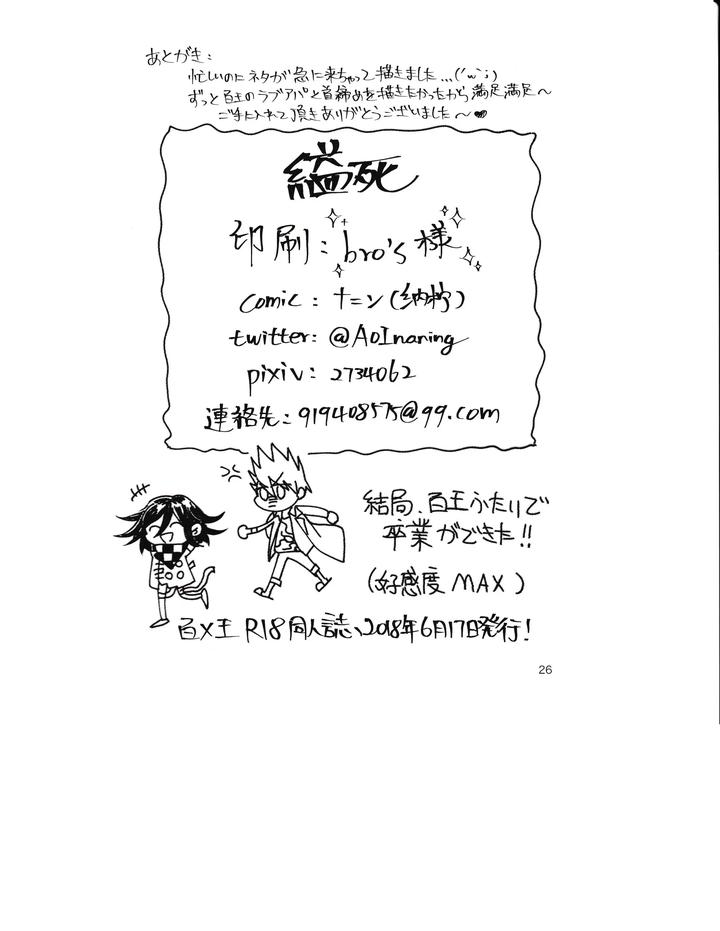 あとがき:
忙しいのにネタが急に来ちゃって描きました...(´ω`;)
ずっと百王のラブアパと首締めを描きたかったから満足満足〜
ご手に入れて頂きありがとうございました〜♥
縊死
印刷:bro's様
comic:ナニン(納柠)
twitter:@AoInaning
pixiv:2734062
連絡先:919408575@qq.com
結局、百王ふたりで
卒業ができた!!
(好感度MAX)
百×王 R18同人誌、2018年6月17日発行!
26